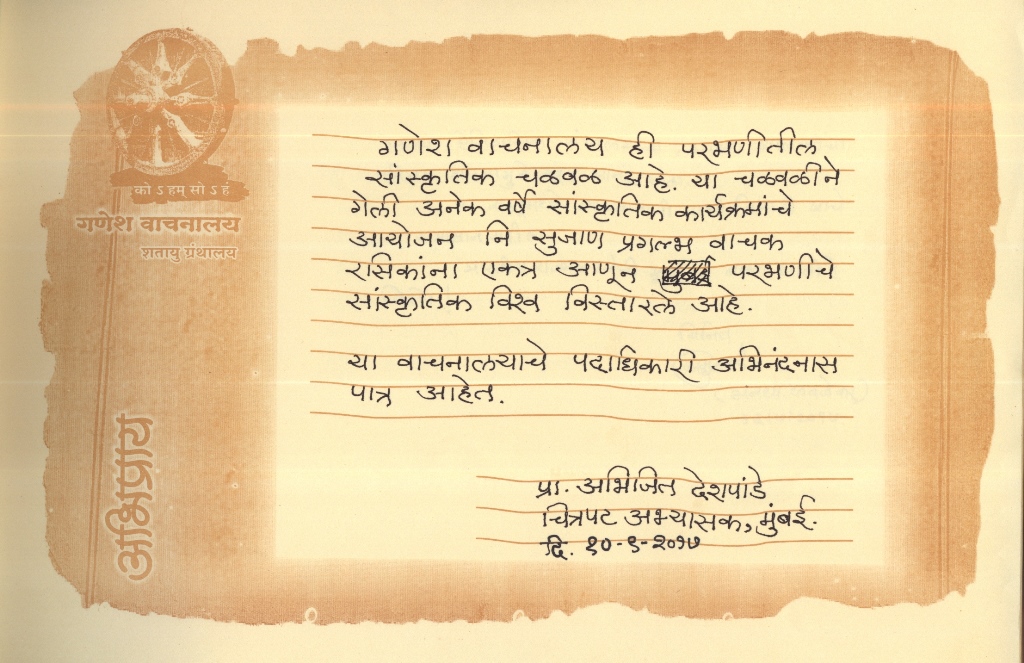 को ऽ हम् सो ऽ हं
गणेश वाचनालय
शतायु ग्रंथालय
अभिप्राय
गणेश वाचनालय ही परभणीतील
सांस्कृतिक चळवळ आहे. या चळवळीने
गेली अनेक वर्षे सांस्कृतिक कार्यक्रमांचे
आयोजन नि सुजाण प्रगल्भ वाचक
रसिकांना एकत्र आणून परभणीचे
सांस्कृतिक विश्व विस्तारले आहे.
या वाचनालयाचे पदाधिकारी अभिनंदनास
पात्र आहेत.
प्रा. अभिजित देशपांडे
चित्रपट अभ्यासक, मुंबई.
दि. १०-९-२०१७